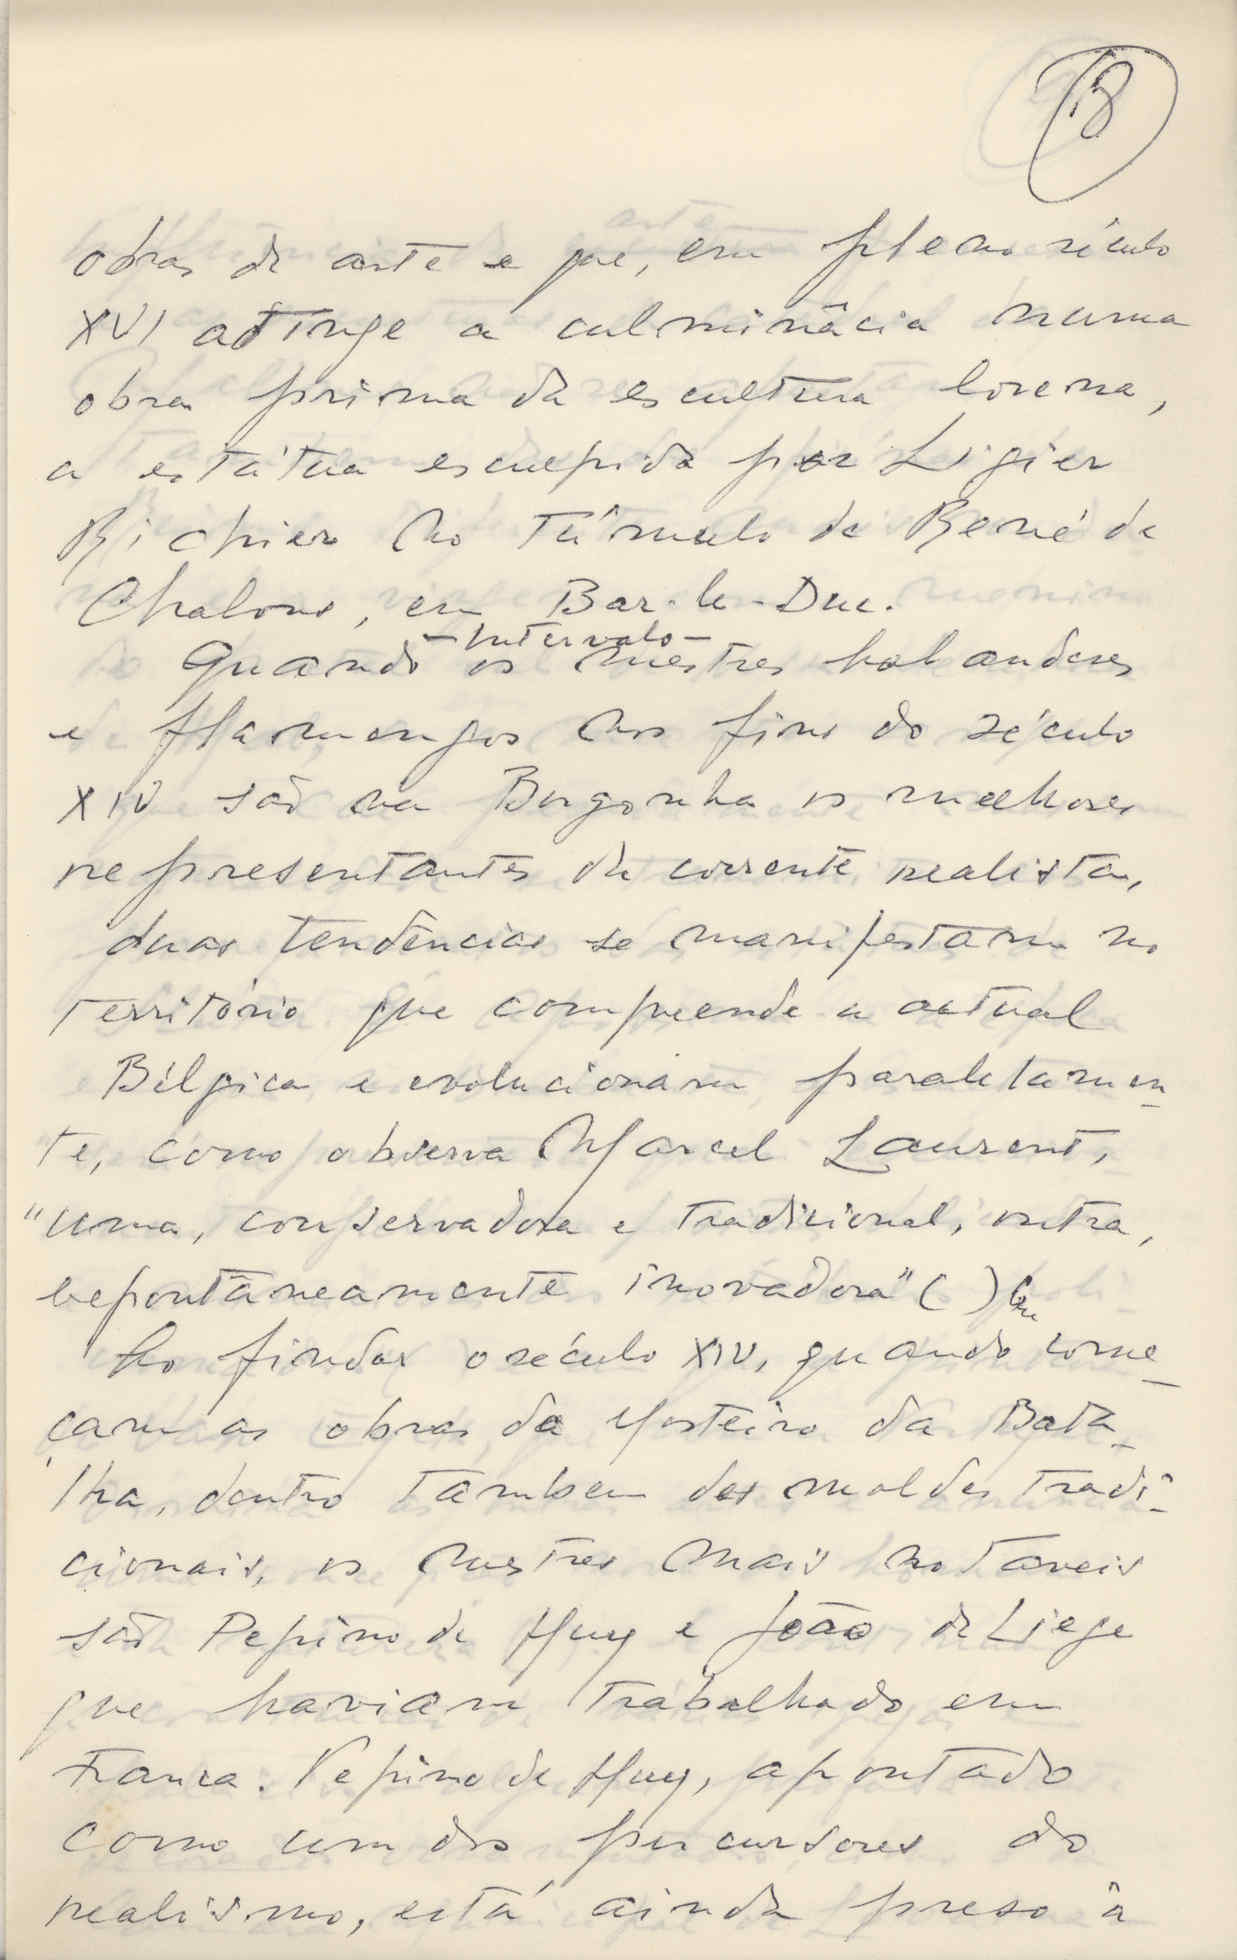 18
obras de arte e que, em pleno século
XVI atinge a culminâcia numa
obra prima da escultura lorena,
a estátua esculpida por Ligier
Richier no túmulo de René de
Chalons, em Bar-le-Duc.
-Intervalo-
Quando os mestres holandeses
e flamengos nos fins do século
XIV são na Borgonha os melhores
representantes da corrente realista,
duas tendências se manifestam no
território que compreende a actual
Bélgica e evolucionam paraletamen-
te, como observa Marcel Laurent,
"uma, conservadora e tradicional, outra,
espontâneamente inovadora" ( )
Ao findar o século XIV, quando come-
çam as obras do Mosteiro da Bata-
lha, dentro tambem dos moldes tradi-
cionais, os mestres mais notaveis
são Pepino de Huy e João de Liege
que haviam trabalhado em
França. Pepino de Huy, apontado
como um dos percursores do
realismo, está ainda preso à